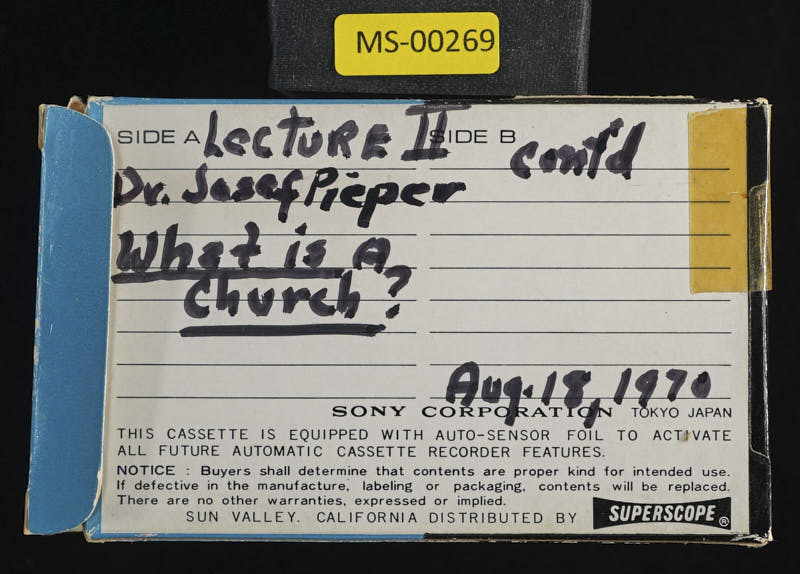 MS-00269
SIDE A Lecture II SIDE B cont'd
Dr. Josef Pieper
What is A
Church?
Aug. 18, 1970
SONY CORPORATION TOKYO JAPAN
THIS CASSETTE IS EQUIPPED WITH AUTO-SENSOR FOIL TO ACTIVATE
ALL FUTURE AUTOMATIC CASSETTE RECORDER FEATURES.
NOTICE : Buyers shall determine that contents are proper kind for intended use.
If defective in the manufacture, labeling or packaging, contents will be replaced.
There are no other warranties, expressed or implied.
SUN VALLEY. CALIFORNIA DISTRIBUTED BY SUPERSCOPE®